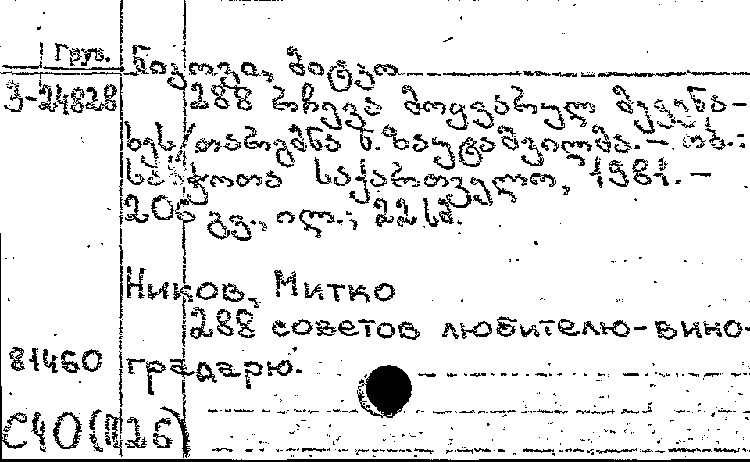 Груз. ნიკოვი, მიტკო
3-24828 288 რჩევა მოყვარულ მევენა-
ხეს/თარგმნა ნ. ზაუტაშვილმა. – თბ.:
საბჭოთა საქართველო, 1981. –
206 გვ., ილ.; 22 სმ.
Ников, Митко
288 советов любителю-вино-
81460 градарю.
С40(П26)